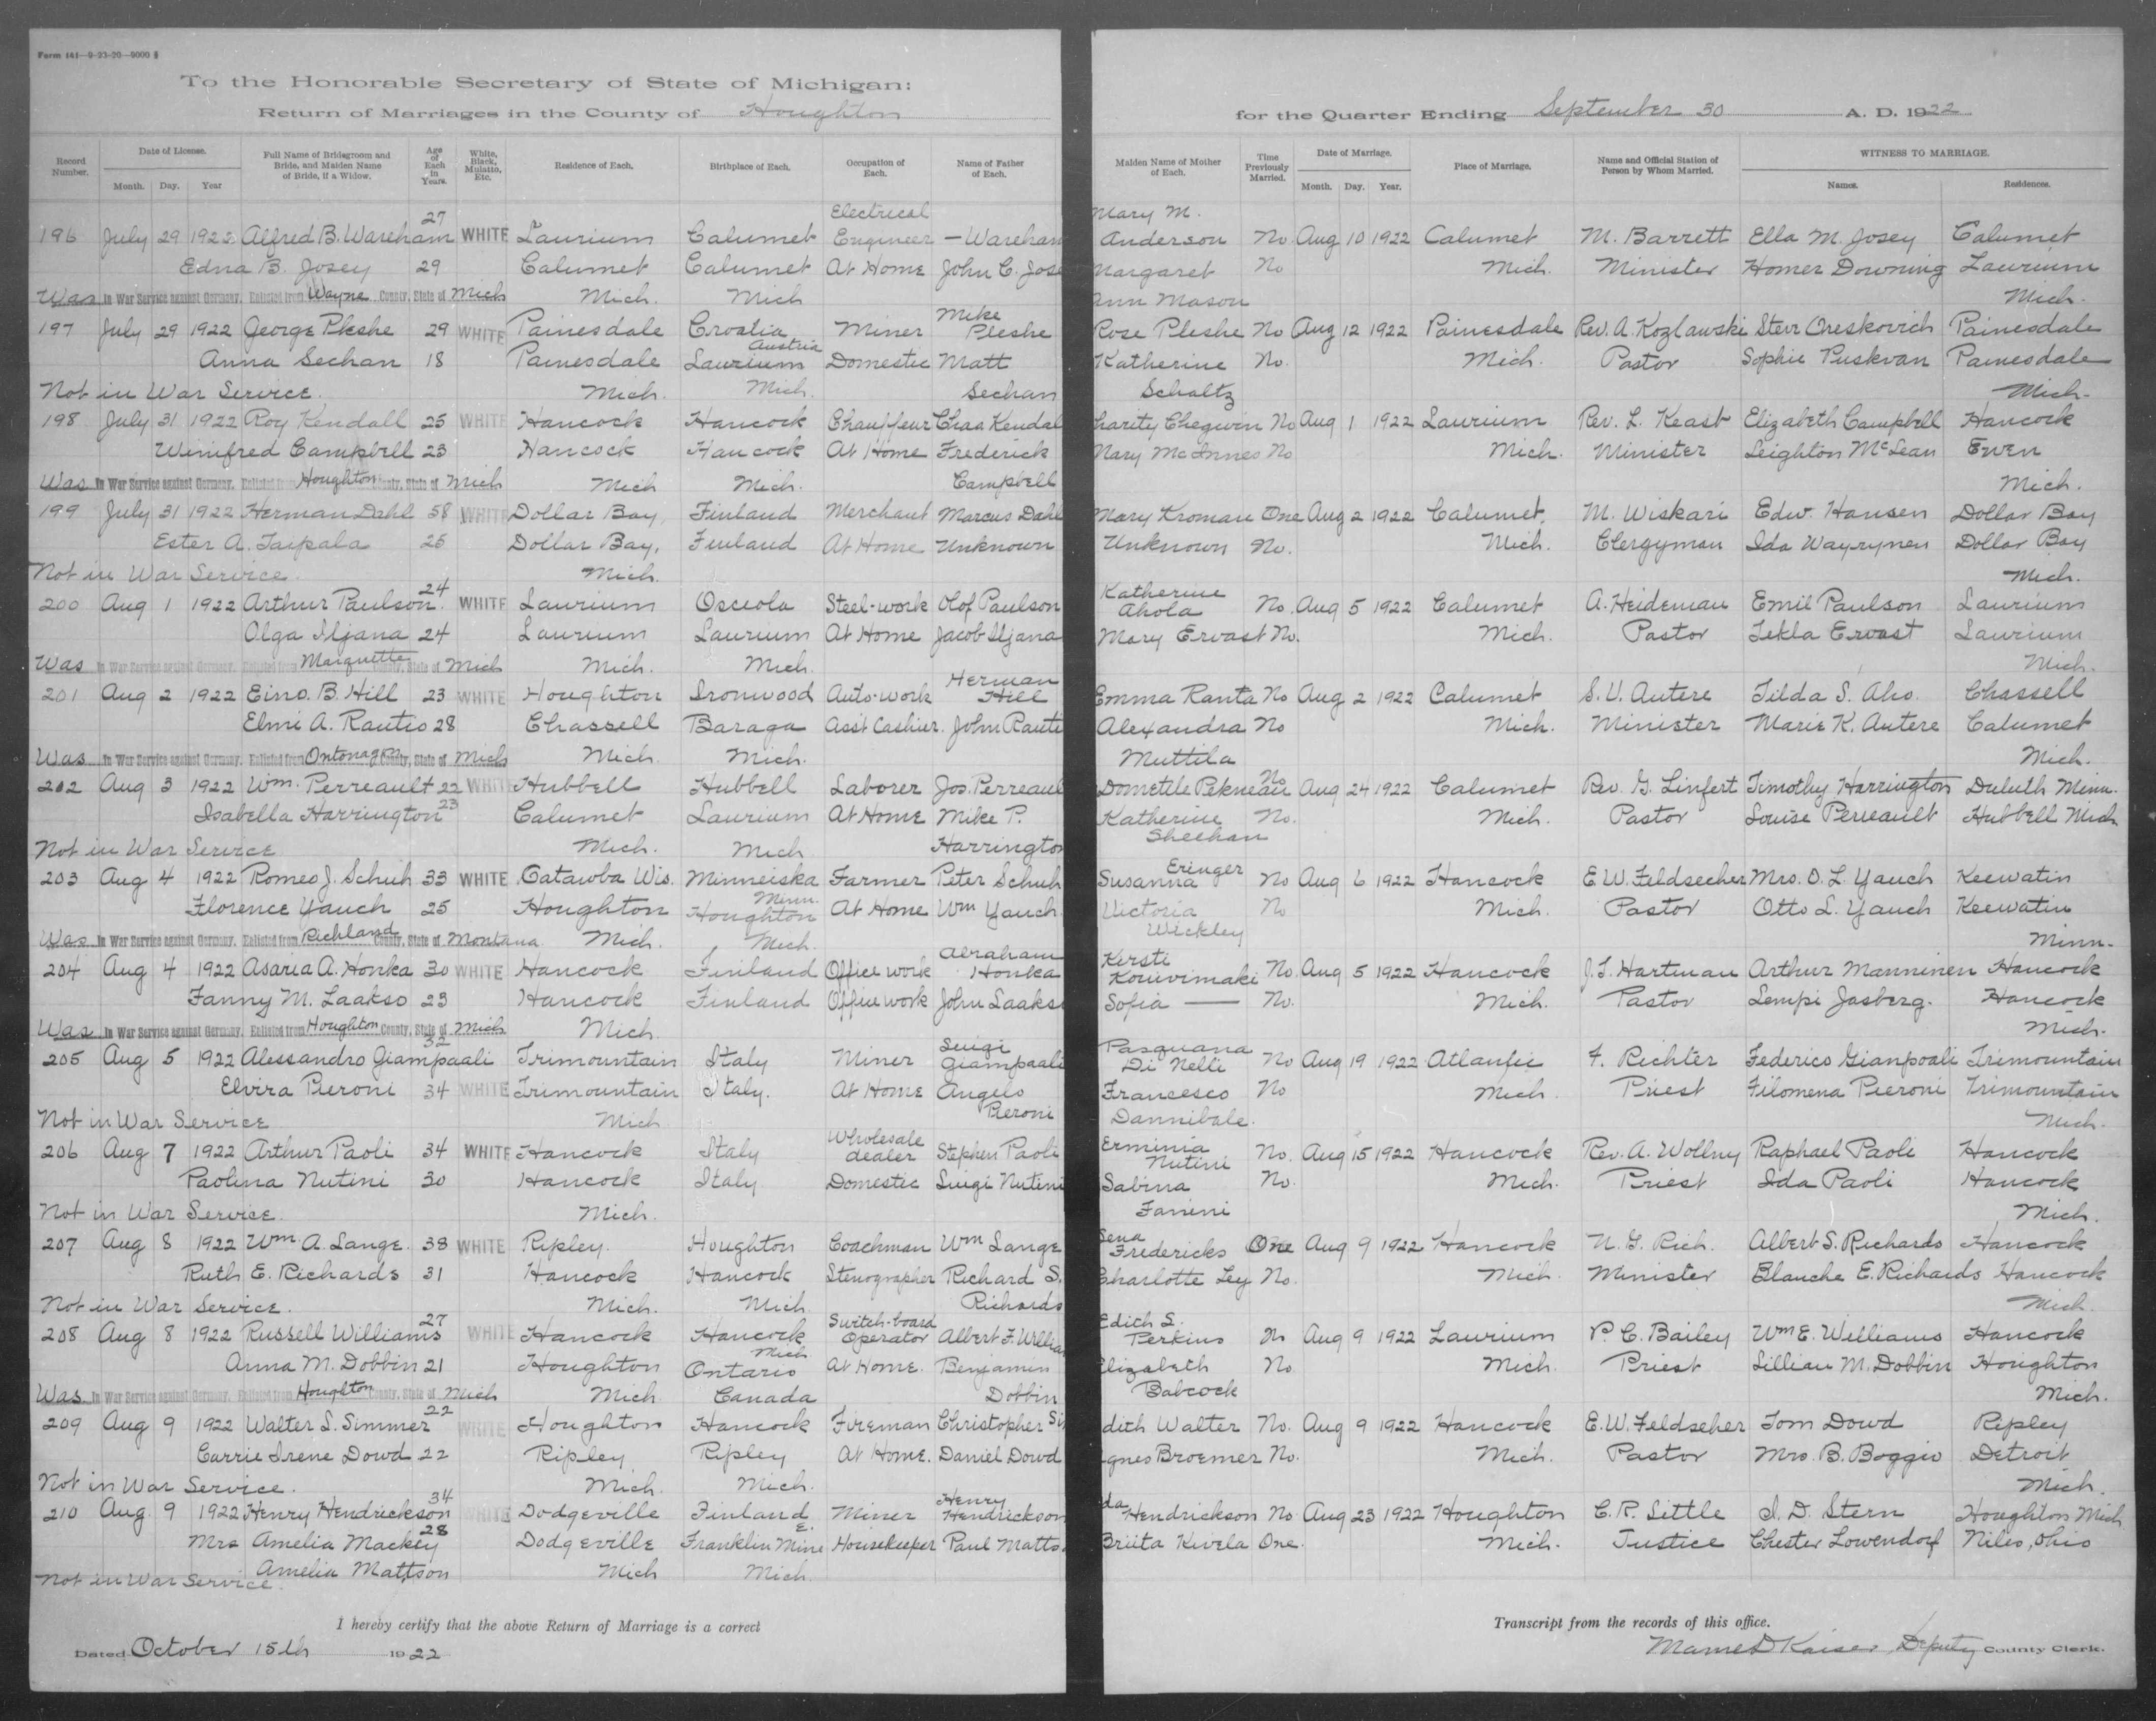 Form 141—9-23-20—8000
To the Honorable Secretary of State of Michigan:
Return of Marriages in the County of Houghton for the Quarter Ending September 30 A. D. 1922
Record Number. Date of License. Month. Day. Year Full Name of Bridegroom and Bride, and Maiden Name of Bride, if a Widow. Age of Each in Years. White, Black, Mulatto, Etc. Residence of Each. Birthplace of Each. Occupation of Each. Name of Father of Each. Maiden Name of Mother of Each. Time Previously Married. Date of Marriage. Month. Day. Year. Place of Marriage. Name and Official Station of Person by Whom Married. WITNESS TO MARRIAGE. Names. Residences.
27 Electrical Mary M.
196 July 29 1922 Alfred B. Wareham WHITE Laurium Calumet Engineer — Wareham Anderson No. Aug 10 1922 Calumet M. Barrett Ella M. Josey Calumet
Edna B. Josey 29 Calumet Calumet At Home John C. Jose Margaret No Mich. Minister Homer Downing Laurium
Was In War Service against Germany. Enlisted from Wayne County, State of Mich Mich. Mich Ann Mason Mich.
197 July 29 1922 George Pleshe 29 WHITE Painesdale Croatia Austria Miner Mike Pleshe Rose Pleshe No Aug 12 1922 Painesdale Rev. A. Kozlawski Stevr Oreskovich Painesdale
Anna Sechan 18 Painesdale Laurium Domestic Matt Katherine No. Mich. Pastor Sophie Puskvan Painesdale
Not in War Service. Mich. Mich. Sechan Schaltz Mich.
198 July 31 1922 Roy Kendall 25 WHITE Hancock Hancock Chauffeur Chas Kendal harity Chegwin No Aug 1 1922 Laurium Rev. L. Keast Elizabeth Campbell Hancock
Winifred Campbell 23 Hancock Hancock At Home Frederick Mary McInnes No Mich. Minister Leighton McLean Ewen
Was In War Service against Germany. Enlisted from Houghton County, State of Mich Mich Mich. Campbell Mich.
199 July 31 1922 Herman Dahl 58 WHITE Dollar Bay, Finland Merchant Marcus Dahl Mary Kroman One Aug 2 1922 Calumet, M. Wiskari Edw. Hansen Dollar Bay
Ester A. Taipala 25 Dollar Bay, Finland At Home Unknown Unknown No. Mich. Clergyman Ida Wayrynen Dollar Bay
Not in War Service. Mich. Mich.
200 Aug 1 1922 Arthur Paulson. 24 WHITE Laurium Osceola Steel-work Olof Paulson Katherine Ahola No. Aug 5 1922 Calumet A. Heideman Emil Paulson Laurium
Olga Iljana 24 Laurium Laurium At Home Jacob Iljana Mary Ervast No. Mich. Pastor Tekla Ervast Laurium
Was In War Service against Germany. Enlisted from Marquette County, State of Mich Mich. Mich. Mich.
201 Aug 2 1922 Eino. B Hill 23 WHITE Houghton Ironwood Auto-work Herman Hill Emma Ranta No Aug 2 1922 Calumet S. V. Autere Tilda S. Aho. Chassell
Elmi A. Rautio 28 Chassell Baraga Ass't Cashier. John Rauti Alexandra No Mich. Minister Marie K. Autere Calumet
Was In War Service against Germany. Enlisted from Ontonagon County, State of Mich Mich. Mich. Muttila Mich.
202 Aug 3 1922 Wm. Perreault 22 WHITE Hubbell Hubbell Laborer Jos. Perreaul Dometile Pekneau No Aug 24 1922 Calumet Rev. G. Linfert Timothy Harrington Duluth Minn.
Isabella Harrington 23 Calumet Laurium At Home Mike P. Katherine No. Mich. Pastor Louise Perreault Hubbell Mich
Not in War Service Mich. Mich Harrington Sheehan
203 Aug 4 1922 Romeo J. Schuh 33 WHITE Catawba Wis. Minneiska Minn. Farmer Peter Schuh Susanna Eringer No Aug 6 1922 Hancock E W. Feldsecher Mrs. O. L. Yauch Keewatin
Florence Yauch 25 Houghton Houghton At Home Wm Yauch. Victoria No Mich. Pastor Otto L. Yauch Keewatin
Was In War Service against Germany. Enlisted from Richland County, State of Montana Mich. Mich. Wickley Minn.
204 Aug 4 1922 Asaria A. Honka 30 WHITE Hancock Finland Office work Abraham Honka Kersti Kouvimaki No. Aug 5 1922 Hancock J. L. Hartman Arthur Manninen Hancock
Fanny M. Laakso 23 Hancock Finland Office work John Laaks Sofia — No. Mich. Pastor Lempi Jasberg. Hancock
Was In War Service against Germany. Enlisted from Houghton County, State of Mich Mich. Mich.
205 Aug 5 1922 Alessandro Giampaali 32 Trimountain Italy Miner Luigi Giampaali Pasquana Di Nelli No Aug 19 1922 Atlantic F. Richter Federico Gianpoali Trimountain
Elvira Pieroni 34 WHITE Trimountain Italy. At Home Angelo Francesco No Mich. Priest Filomena Pieroni Trimountain
Not in War Service Mich Pieroni Dannibale. Mich.
206 Aug 7 1922 Arthur Paoli 34 WHITE Hancock Italy Wholesale dealer Stephen Paoli Erminia Nutini No. Aug 15 1922 Hancock Rev. A. Wollny Raphael Paoli Hancock
Paolina Nutini 30 Hancock Italy Domestic Luigi Nutini Sabina No. Mich. Priest Ida Paoli Hancock
Not in War Service. Mich. Fanini Mich.
207 Aug 8 1922 Wm. A. Lange. 38 WHITE Ripley. Houghton Coachman Wm Lange Lena Fredericks One Aug 9 1922 Hancock N. G. Rich. Albert S. Richards Hancock
Ruth E. Richards 31 Hancock Hancock Stenographer Richard S. Charlotte Ley No. Mich. Minister Blanche E. Richards Hancock
Not in War Service. Mich. Mich. Richards Mich.
208 Aug 8 1922 Russell Williams 27 WHITE Hancock Hancock Mich Switch-board Operator Albert F. Willia Edith S. Perkins No Aug 9 1922 Laurium P. C. Bailey Wm E. Williams Hancock
Anna M. Dobbin 21 Houghton Ontario At Home. Benjamin Elizabeth No Mich. Priest Lillian M. Dobbin Houghton
Was In War Service against Germany. Enlisted from Houghton County, State of Mich Mich Canada Dobbin Babcock Mich.
209 Aug 9 1922 Walter L. Simmer 22 WHITE Houghton Hancock Fireman Christopher Si dith Walter No. Aug 9 1922 Hancock E. W. Feldseher Tom Dowd Ripley
Carrie Irene Dowd 22 Ripley Ripley At Home. Daniel Dowd gnes Broemer No. Mich. Pastor Mrs. B. Boggio Detroit
Not in War Service. Mich. Mich. Mich.
210 Aug. 9 1922 Henry Hendrickson 34 WHITE Dodgeville Finland Miner Henry Hendrickson da Hendrickson No Aug 23 1922 Houghton C. R. Little I. D. Stern Houghton Mich
Mrs Amelia Mackey 28 Dodgeville E. Franklin Mine Housekeeper Paul Matts Briita Kivela One. Mich. Justice Chester Lowendorf Niles, Ohio
Not in War Service. Amelia Mattson Mich Mich.
I hereby certify that the above Return of Marriage is a correct Transcript from the records of this office.
Dated October 15th 1922 Mame D Kaiser Deputy County Clerk.